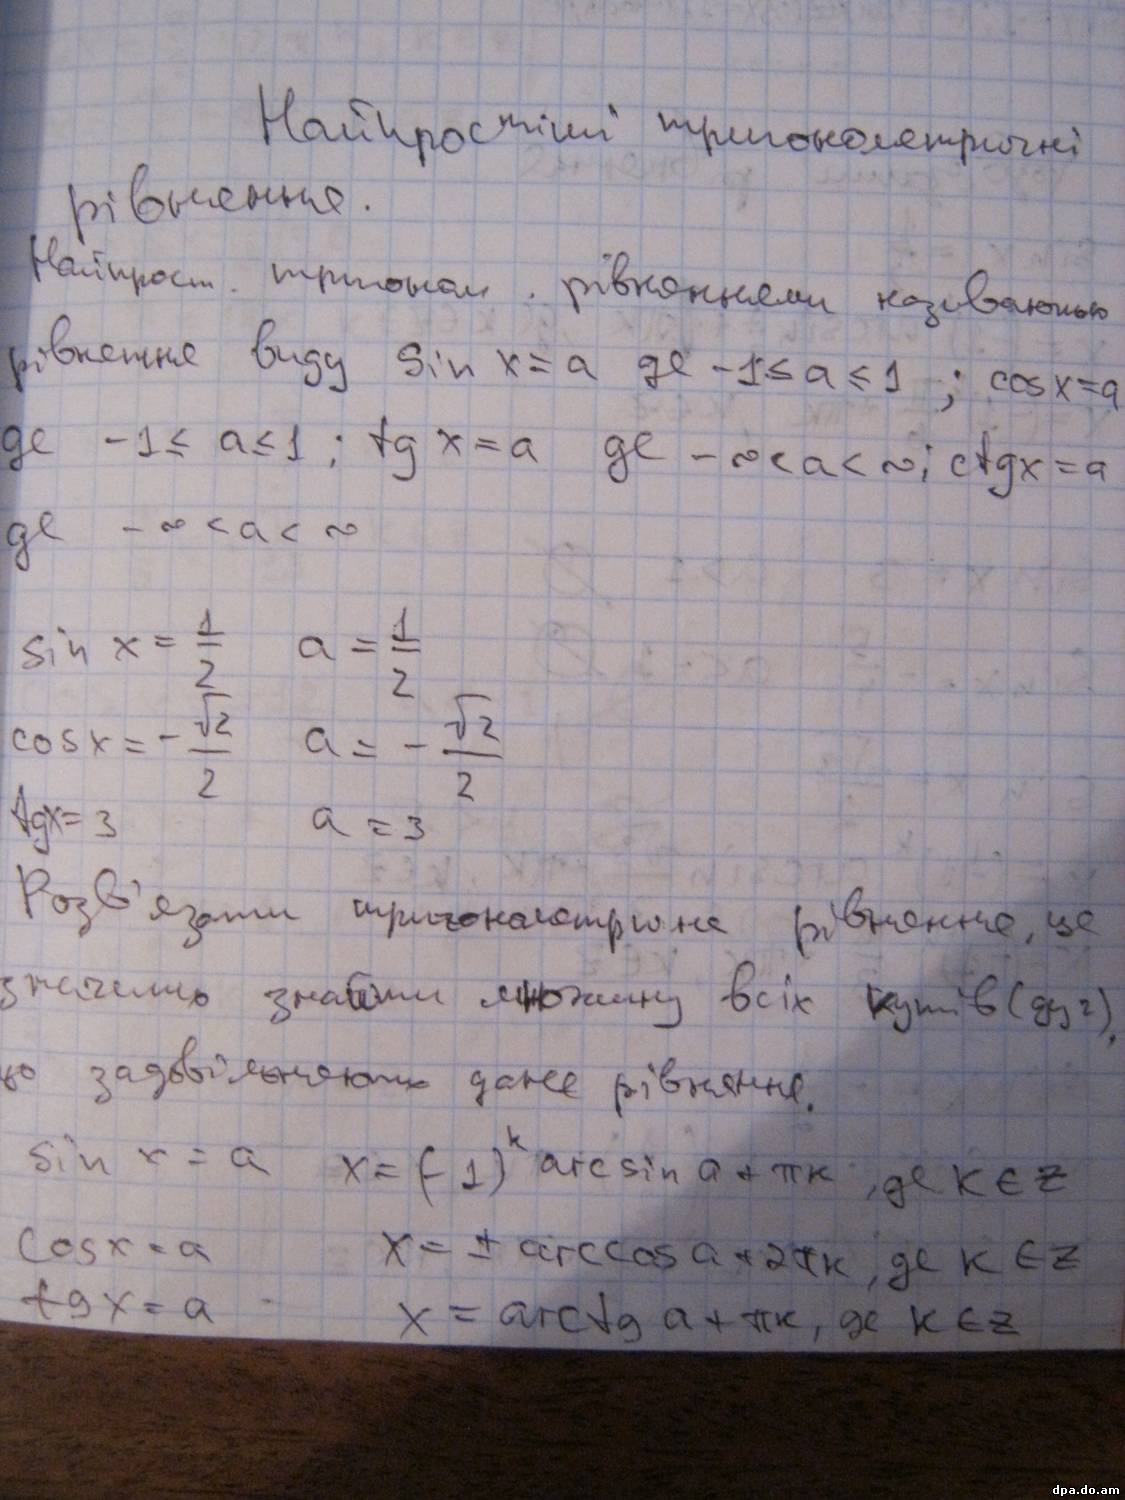 Найпростіші тригонометричні
рівняння.
Найпрост. тригоном. рівняннями називають
рівняння виду sin x = a де -1 ≤ a ≤ 1 ; cos x = a
де -1 ≤ a ≤ 1 ; tg x = a де -∞ < a < ∞; ctgx = a
де -∞ < a < ∞
sin x = 1/2 a = 1/2
cos x = -√2/2 a = -√2/2
tgx = 3 a = 3
Розв'язати тригонометричне рівняння, це
значить знайти множину всіх кутів (дуг),
що задовільняють дане рівняння.
sin x = a x = (-1)^k arcsin a + πk, де k ∈ Z
cos x = a x = ± arccos a + 2πk, де k ∈ Z
tg x = a x = arctg a + πk, де k ∈ Z
dpa.do.am